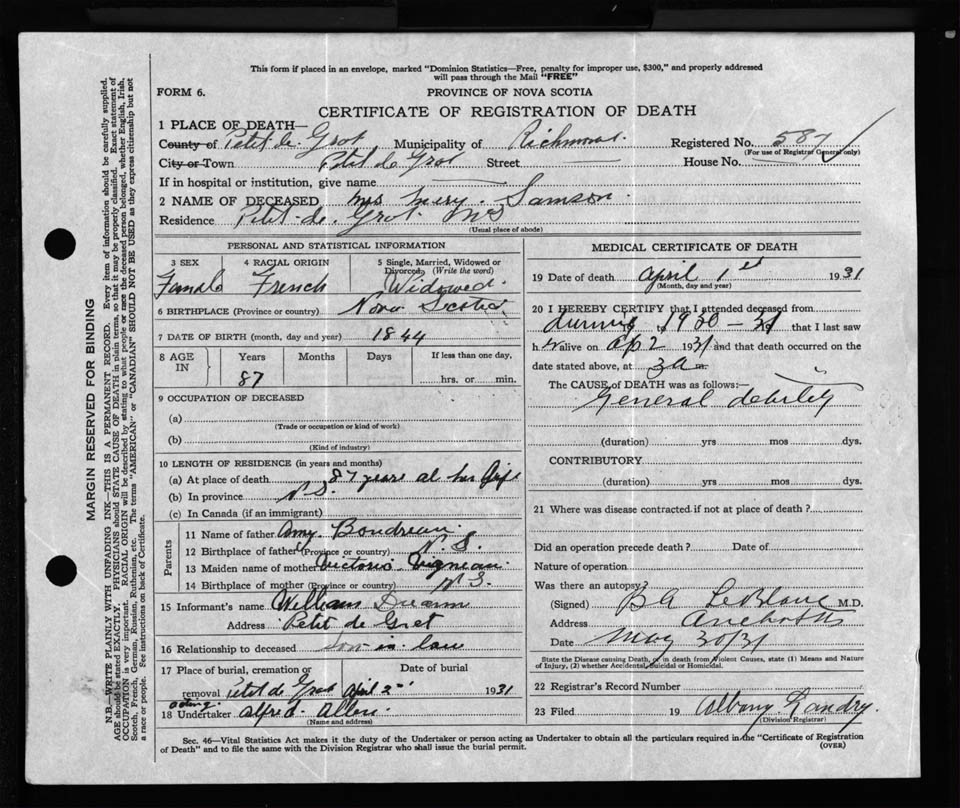 This form if placed in an envelope, marked "Dominion Statistics—Free, penalty for improper use, $300," and properly addressed
will pass through the Mail "FREE"
FORM 6.
PROVINCE OF NOVA SCOTIA
CERTIFICATE OF REGISTRATION OF DEATH
1 PLACE OF DEATH—
County of Petit de Grat Municipality of Richmond Registered No. 587
(For use of Registrar General only)
City or Town Petit de Grat Street House No.
If in hospital or institution, give name
2 NAME OF DECEASED Mrs Mery Samson
Residence Petit de Grat NS
(Usual place of abode)
PERSONAL AND STATISTICAL INFORMATION
3 SEX 4 RACIAL ORIGIN 5 Single, Married, Widowed or
Divorced (Write the word)
Famale French Widowed
6 BIRTHPLACE (Province or country) Nova Scotia
7 DATE OF BIRTH (month, day and year) 1844
8 AGE IN Years Months Days If less than one day,
87 hrs. or min.
9 OCCUPATION OF DECEASED
(a)
(Trade or occupation or kind of work)
(b)
(Kind of industry)
10 LENGTH OF RESIDENCE (in years and months)
(a) At place of death 87 years al her life
(b) In province N S.
(c) In Canada (if an immigrant)
Parents
11 Name of father Amy Boudreau
12 Birthplace of father (Province or country) N. S.
13 Maiden name of mother Victoria
14 Birthplace of mother (Province or country) N S.
15 Informant's name William
Address Petit de Gret
16 Relationship to deceased son in law
17 Place of burial, cremation or Date of burial
removal Petit de Grat April 2 1931
acting
18 Undertaker Alfred Allen
(Name and address)
MEDICAL CERTIFICATE OF DEATH
19 Date of death April 1st 1931
(Month, day and year)
20 I HEREBY CERTIFY that I attended deceased from
during 1930 - 31 that I last saw
h er alive on Ap 2 1931 and that death occurred on the
date stated above, at 3 a m.
The CAUSE of DEATH was as follows:—
General debility
(duration) yrs mos dys.
CONTRIBUTORY
(duration) yrs mos dys.
21 Where was disease contracted if not at place of death?
Did an operation precede death? Date of
Nature of operation
Was there an autopsy?
(Signed) B A LeBlanc M.D.
Address Arichat NS
Date May 30/31
State the Disease causing Death, or in death from Violent Causes, state (1) Means and Nature
of Injury, (2) whether Accidental, Suicidal or Homicidal.
22 Registrar's Record Number
23 Filed 19 Albany Landry
(Division Registrar)
Sec. 46—Vital Statistics Act makes it the duty of the Undertaker or person acting as Undertaker to obtain all the particulars required in the "Certificate of Registration
of Death" and to file the same with the Division Registrar who shall issue the burial permit.
(OVER)
MARGIN RESERVED FOR BINDING
N.B.—WRITE PLAINLY WITH UNFADING INK—THIS IS A PERMANENT RECORD. Every item of information should be carefully supplied.
AGE should be stated EXACTLY. PHYSICIANS should STATE CAUSE OF DEATH in plain terms, so that it may be properly classified. Exact statement of
OCCUPATION is very important. RACIAL ORIGIN will be described by stating to what people or race the deceased person belonged, whether English, Irish,
Scotch, French, German, Russian, Ruthenian, etc. The terms "AMERICAN" or "CANADIAN" SHOULD NOT BE USED as they express citizenship but not
a race or people. See instructions on back of Certificate.